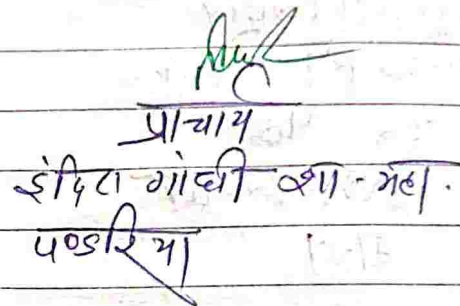 प्राचार्य
इंदिरा गांधी शा - महा.
पण्डरिया